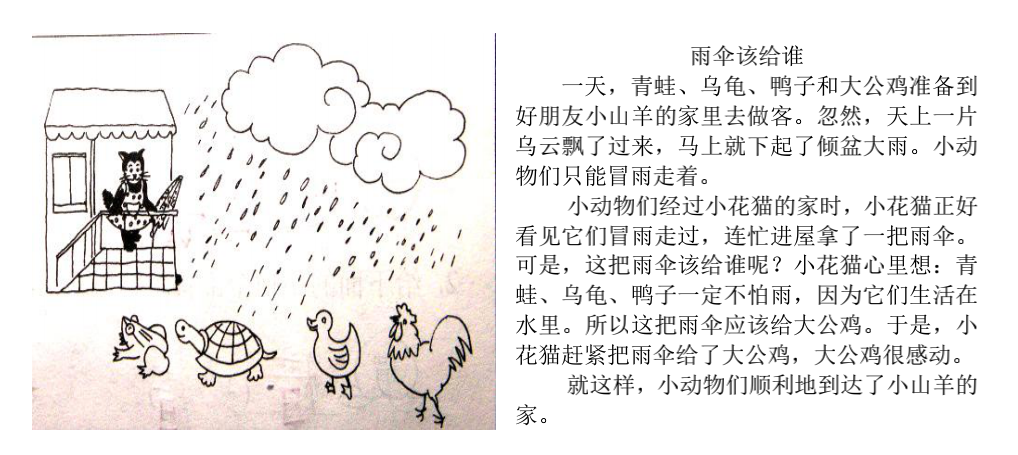 雨伞该给谁
一天，青蛙、乌龟、鸭子和大公鸡准备到
好朋友小山羊的家里去做客。忽然，天上一片
乌云飘了过来，马上就下起了倾盆大雨。小动
物们只能冒雨走着。
小动物们经过小花猫的家时，小花猫正好
看见它们冒雨走过，连忙进屋拿了一把雨伞。
可是，这把雨伞该给谁呢？小花猫心里想：青
蛙、乌龟、鸭子一定不怕雨，因为它们生活在
水里。所以这把雨伞应该给大公鸡。于是，小
花猫赶紧把雨伞给了大公鸡，大公鸡很感动。
就这样，小动物们顺利地到达了小山羊的
家。